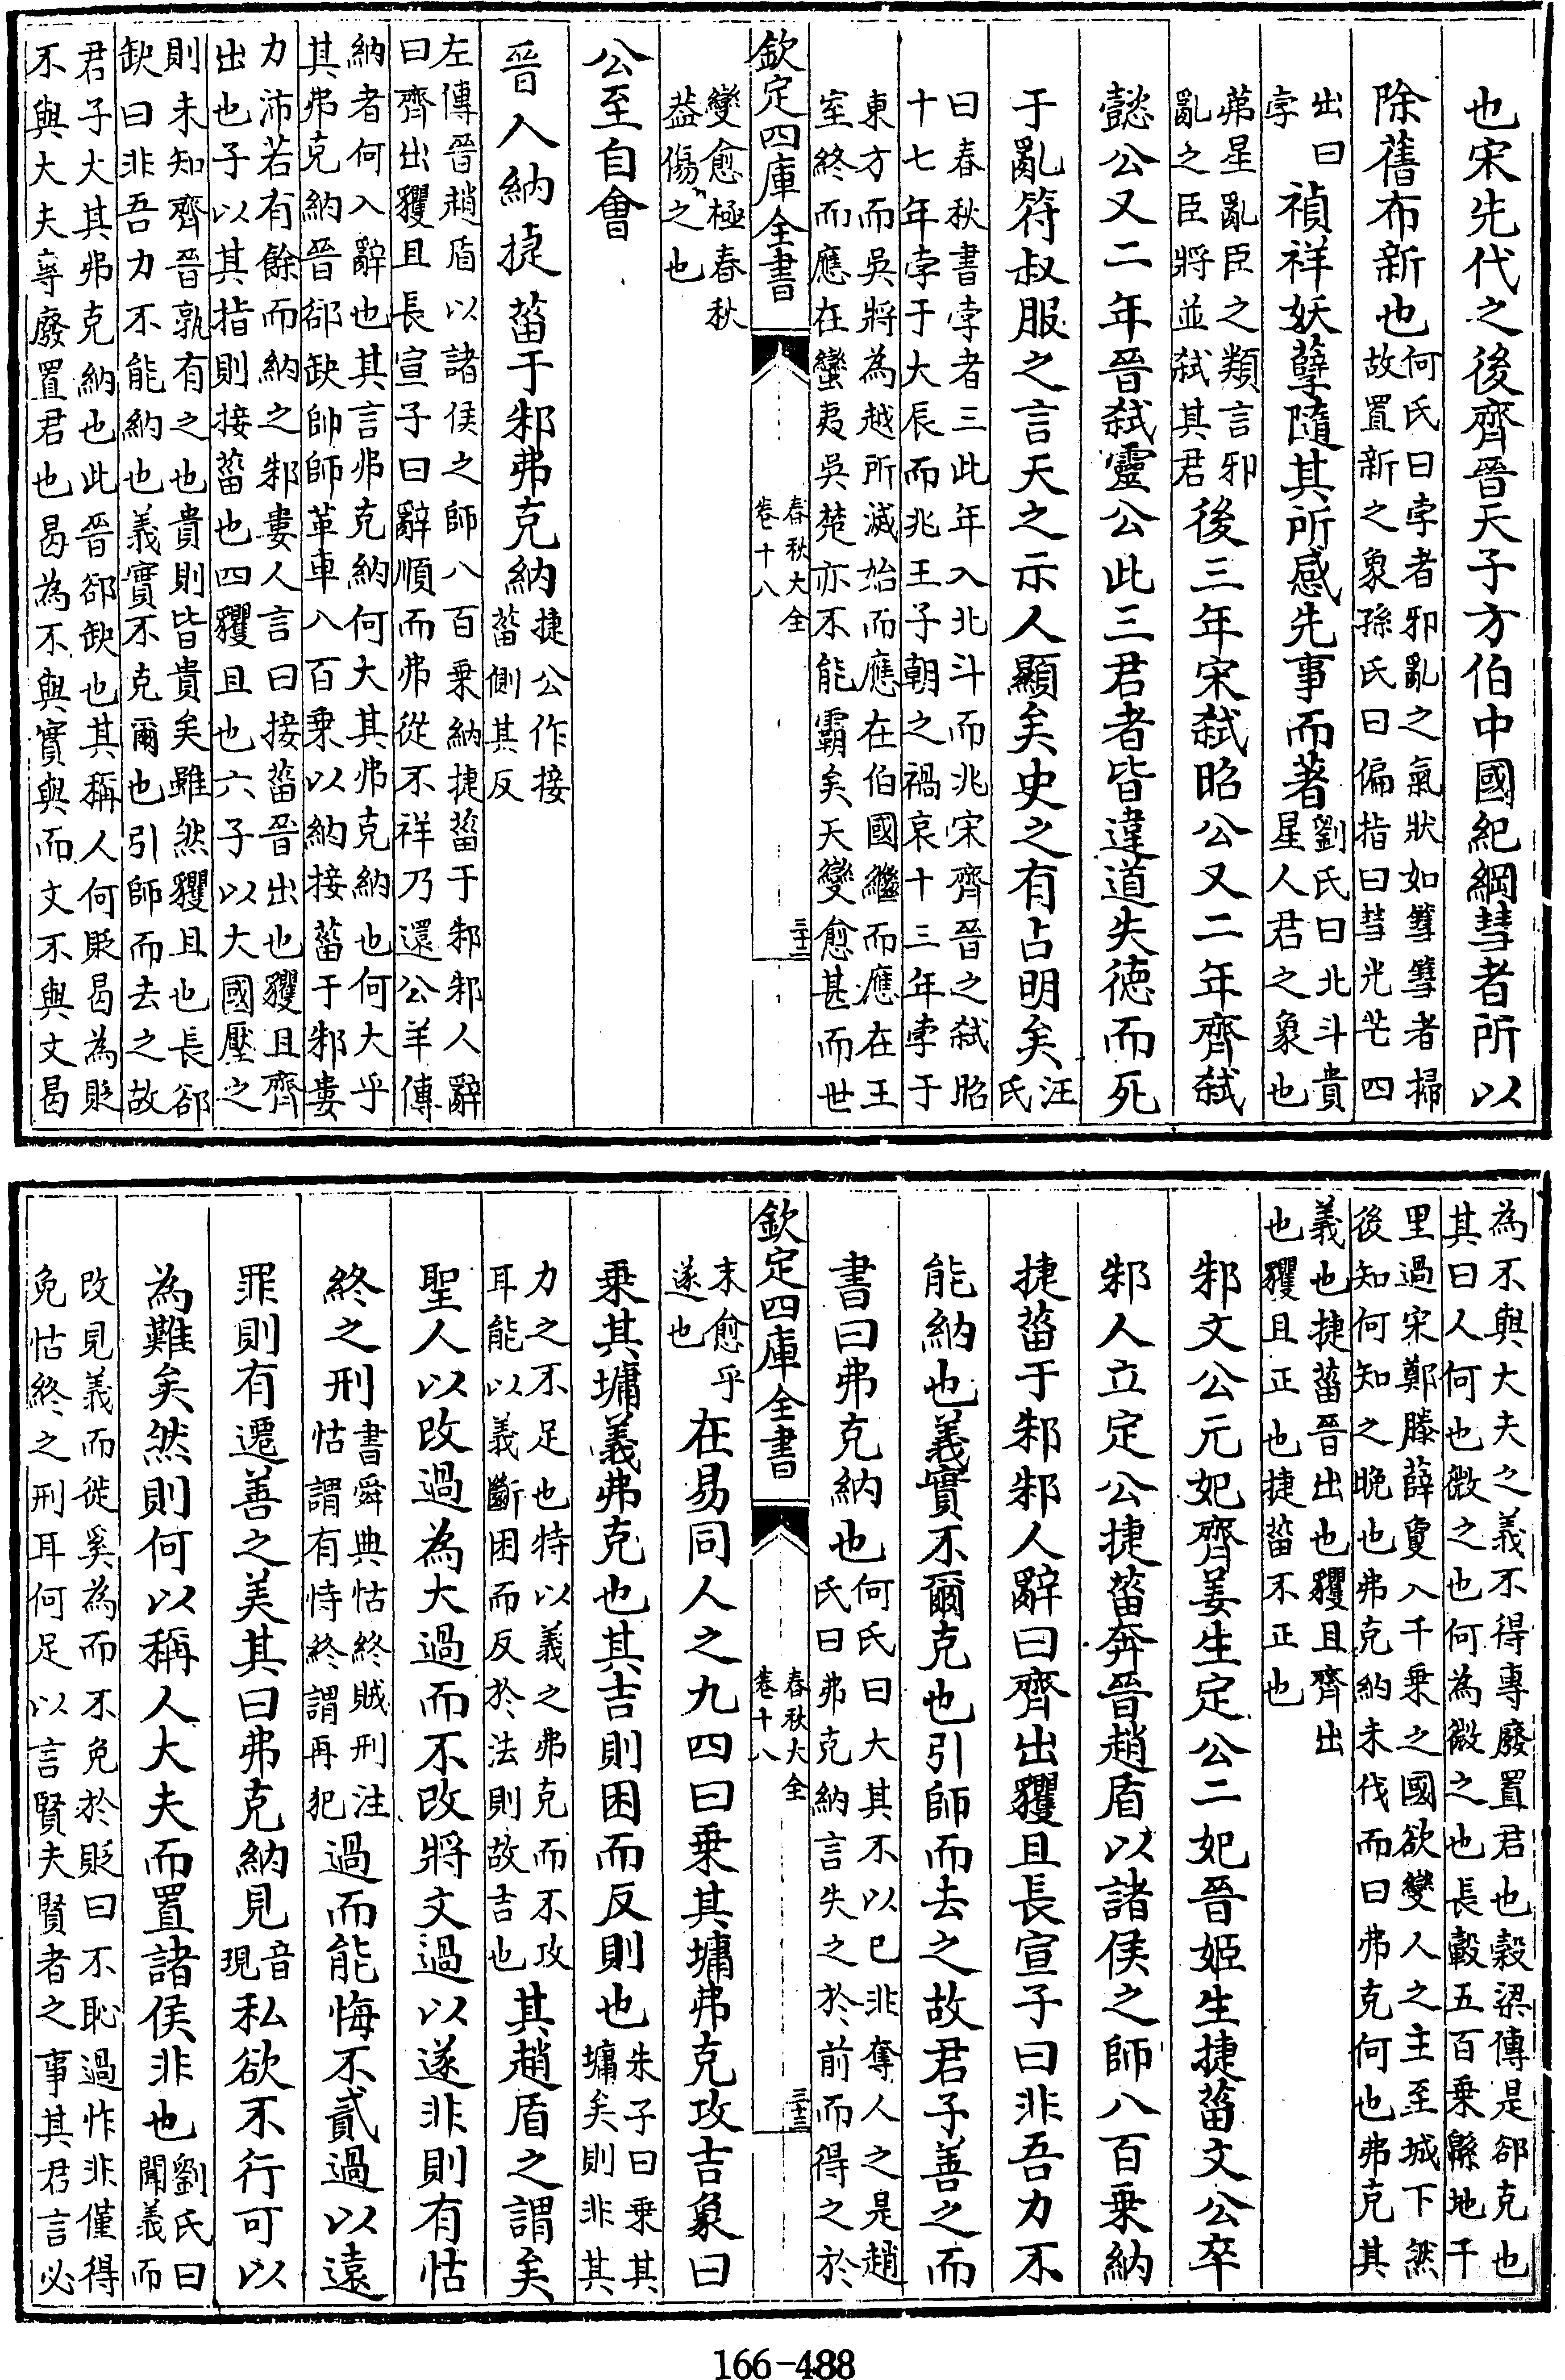 也宋先代之後齊晉天子方伯中國紀綱彗者所以
除舊布新也何氏曰孛者邪亂之氣狀如篲篲者掃
故置新之象孫氏曰偏指曰彗光芒四
出曰
孛
禎祥妖孽隨其所感先事而著劉氏曰北斗貴
星人君之象也
茀星亂臣之類言邪
亂之臣將並弑其君
後三年宋弑昭公又二年齊弑
懿公又二年晉弑靈公此三君者皆違道失徳而死
于亂符叔服之言天之示人顯矣史之有占明矣汪
氏
曰春秋書孛者三此年入北斗而兆宋齊晉之弑昭
十七年孛于大辰而兆王子朝之禍哀十三年孛于
東方而吳將為越所滅始而應在伯國繼而應在王
室終而應在蠻夷吳楚亦不能霸矣天變愈甚而世
欽定四庫全書
春秋大全
卷十八
三十二
變愈極春秋
益傷之也
公至自會
晉人納捷菑于邾弗克納捷公作接
菑側其反
左傳晉趙盾以諸侯之師八百乗納捷菑于邾邾人辭
曰齊出貜且長宣子曰辭順而弗從不祥乃還公羊傳
納者何入辭也其言弗克納何大其弗克納也何大乎
其弗克納晉郤缺帥師革車八百乗以納接菑于邾婁
力沛若有餘而納之邾婁人言曰接菑晉出也貜且齊
出也子以其指則接菑也四貜且也六子以大國壓之
則未知齊晉孰有之也貴則皆貴矣雖然貜且也長郤
缺曰非吾力不能納也義實不克爾也引師而去之故
君子大其弗克納也此晉郤缺也其稱人何貶曷為貶
不與大夫專廢置君也曷為不與實與而文不與文曷
為不與大夫之義不得專廢置君也榖梁傳是郤克也
其曰人何也微之也何為微之也長轂五百乗緜地千
里過宋鄭滕薛敻入千乗之國欲變人之主至城下然
後知何知之晚也弗克納未伐而曰弗克何也弗克其
義也捷菑晉出也貜且齊出
也貜且正也捷菑不正也
邾文公元妃齊姜生定公二妃晉姬生捷菑文公卒
邾人立定公捷菑奔晉趙盾以諸侯之師八百乗納
捷菑于邾邾人辭曰齊出貜且長宣子曰非吾力不
能納也義實不爾克也引師而去之故君子善之而
書曰弗克納也何氏曰大其不以己非奪人之是趙
氏曰弗克納言失之於前而得之於
欽定四庫全書
春秋大全
卷十八
三十三
末愈乎
遂也
在易同人之九四曰乗其墉弗克攻吉象曰
乗其墉義弗克也其吉則困而反則也朱子曰乗其
墉矣則非其
力之不足也特以義之弗克而不攻
耳能以義斷困而反於法則故吉也
其趙盾之謂矣
聖人以改過為大過而不改將文過以遂非則有怙
終之刑書舜典怙終賊刑注
怙謂有恃終謂再犯
過而能悔不貳過以遠
罪則有遷善之美其曰弗克納見音
現
私欲不行可以
為難矣然則何以稱人大夫而置諸侯非也劉氏曰
聞義而
改見義而徙奚為而不免於貶曰不恥過怍非僅得
免怙終之刑耳何足以言賢夫賢者之事其君言必
166-488